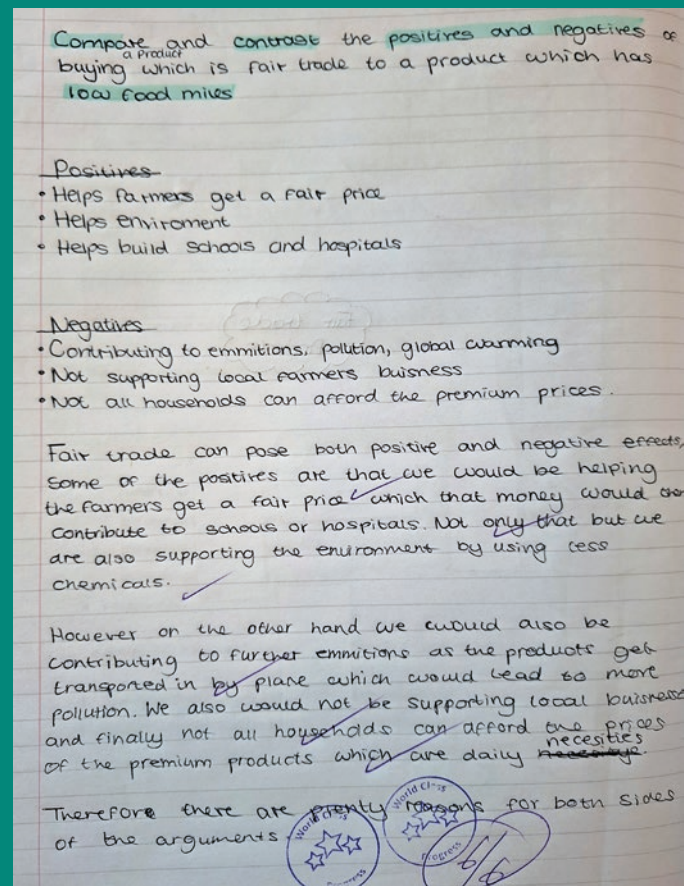 Compare and contrast the positives and negatives of
a product
buying which is fair trade to a product which has
low food miles
Positives
• Helps farmers get a fair price
• Helps enviroment
• Helps build schools and hospitals
Negatives
• Contributing to emmitions, polution, global warming
• Not supporting local farmers buisness
• Not all households can afford the premium prices.
Fair trade can pose both positive and negative effects,
some of the positives are that we would be helping
the farmers get a fair price which that money would then
contribute to schools or hospitals. Not only that but we
are also supporting the environment by using less
chemicals.
However on the other hand we would also be
contributing to further emmitions as the products get
transported in by plane which would lead to more
pollution. We also would not be supporting local buisness
and finally not all households can afford the prices
necesities
of the premium products which are daily
Therefore there are plenty reasons for both sides
of the arguments
World Class
Progress
World Class
Progress
6/6